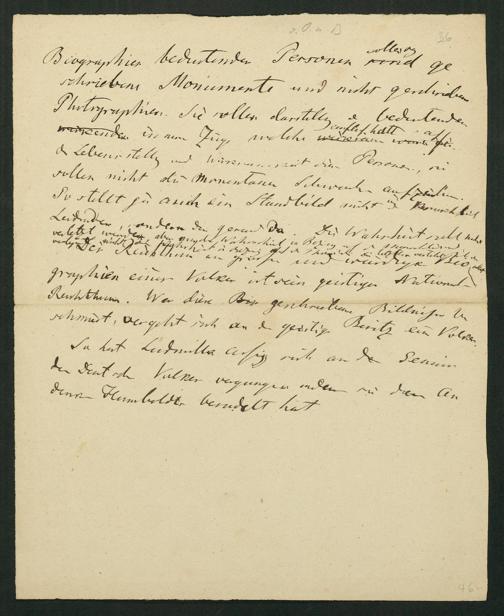 36
Biographien bedeutender Personen sollen ge
schriebene Monumente und nicht geschriebene
Photographien. Sie sollen darstellen die bedeutenden
in dem Zuge welche
der Lebensstellung und Wirksamkeit der Personen, sie
sollen nicht die momentanen Schwächen
So stellt ja auch ein Standbild nicht den
Leidenden, sondern den gesunden da. Die Wahrheit soll nicht
verletzt werden
Der Reichthum an großen und würdigen Bio
graphien eines Volkes ist sein geistiger National
Reichthum. Wer diese geschriebenen Bildnisse be
schmutzt, vergeht sich an dem geistigen Besitz eines Volkes.
So hat Ludmilla Assing sich an dem Genius
des Deutschen Volkes vergangen indem sie das An
denken Humboldts besudelt hat
46